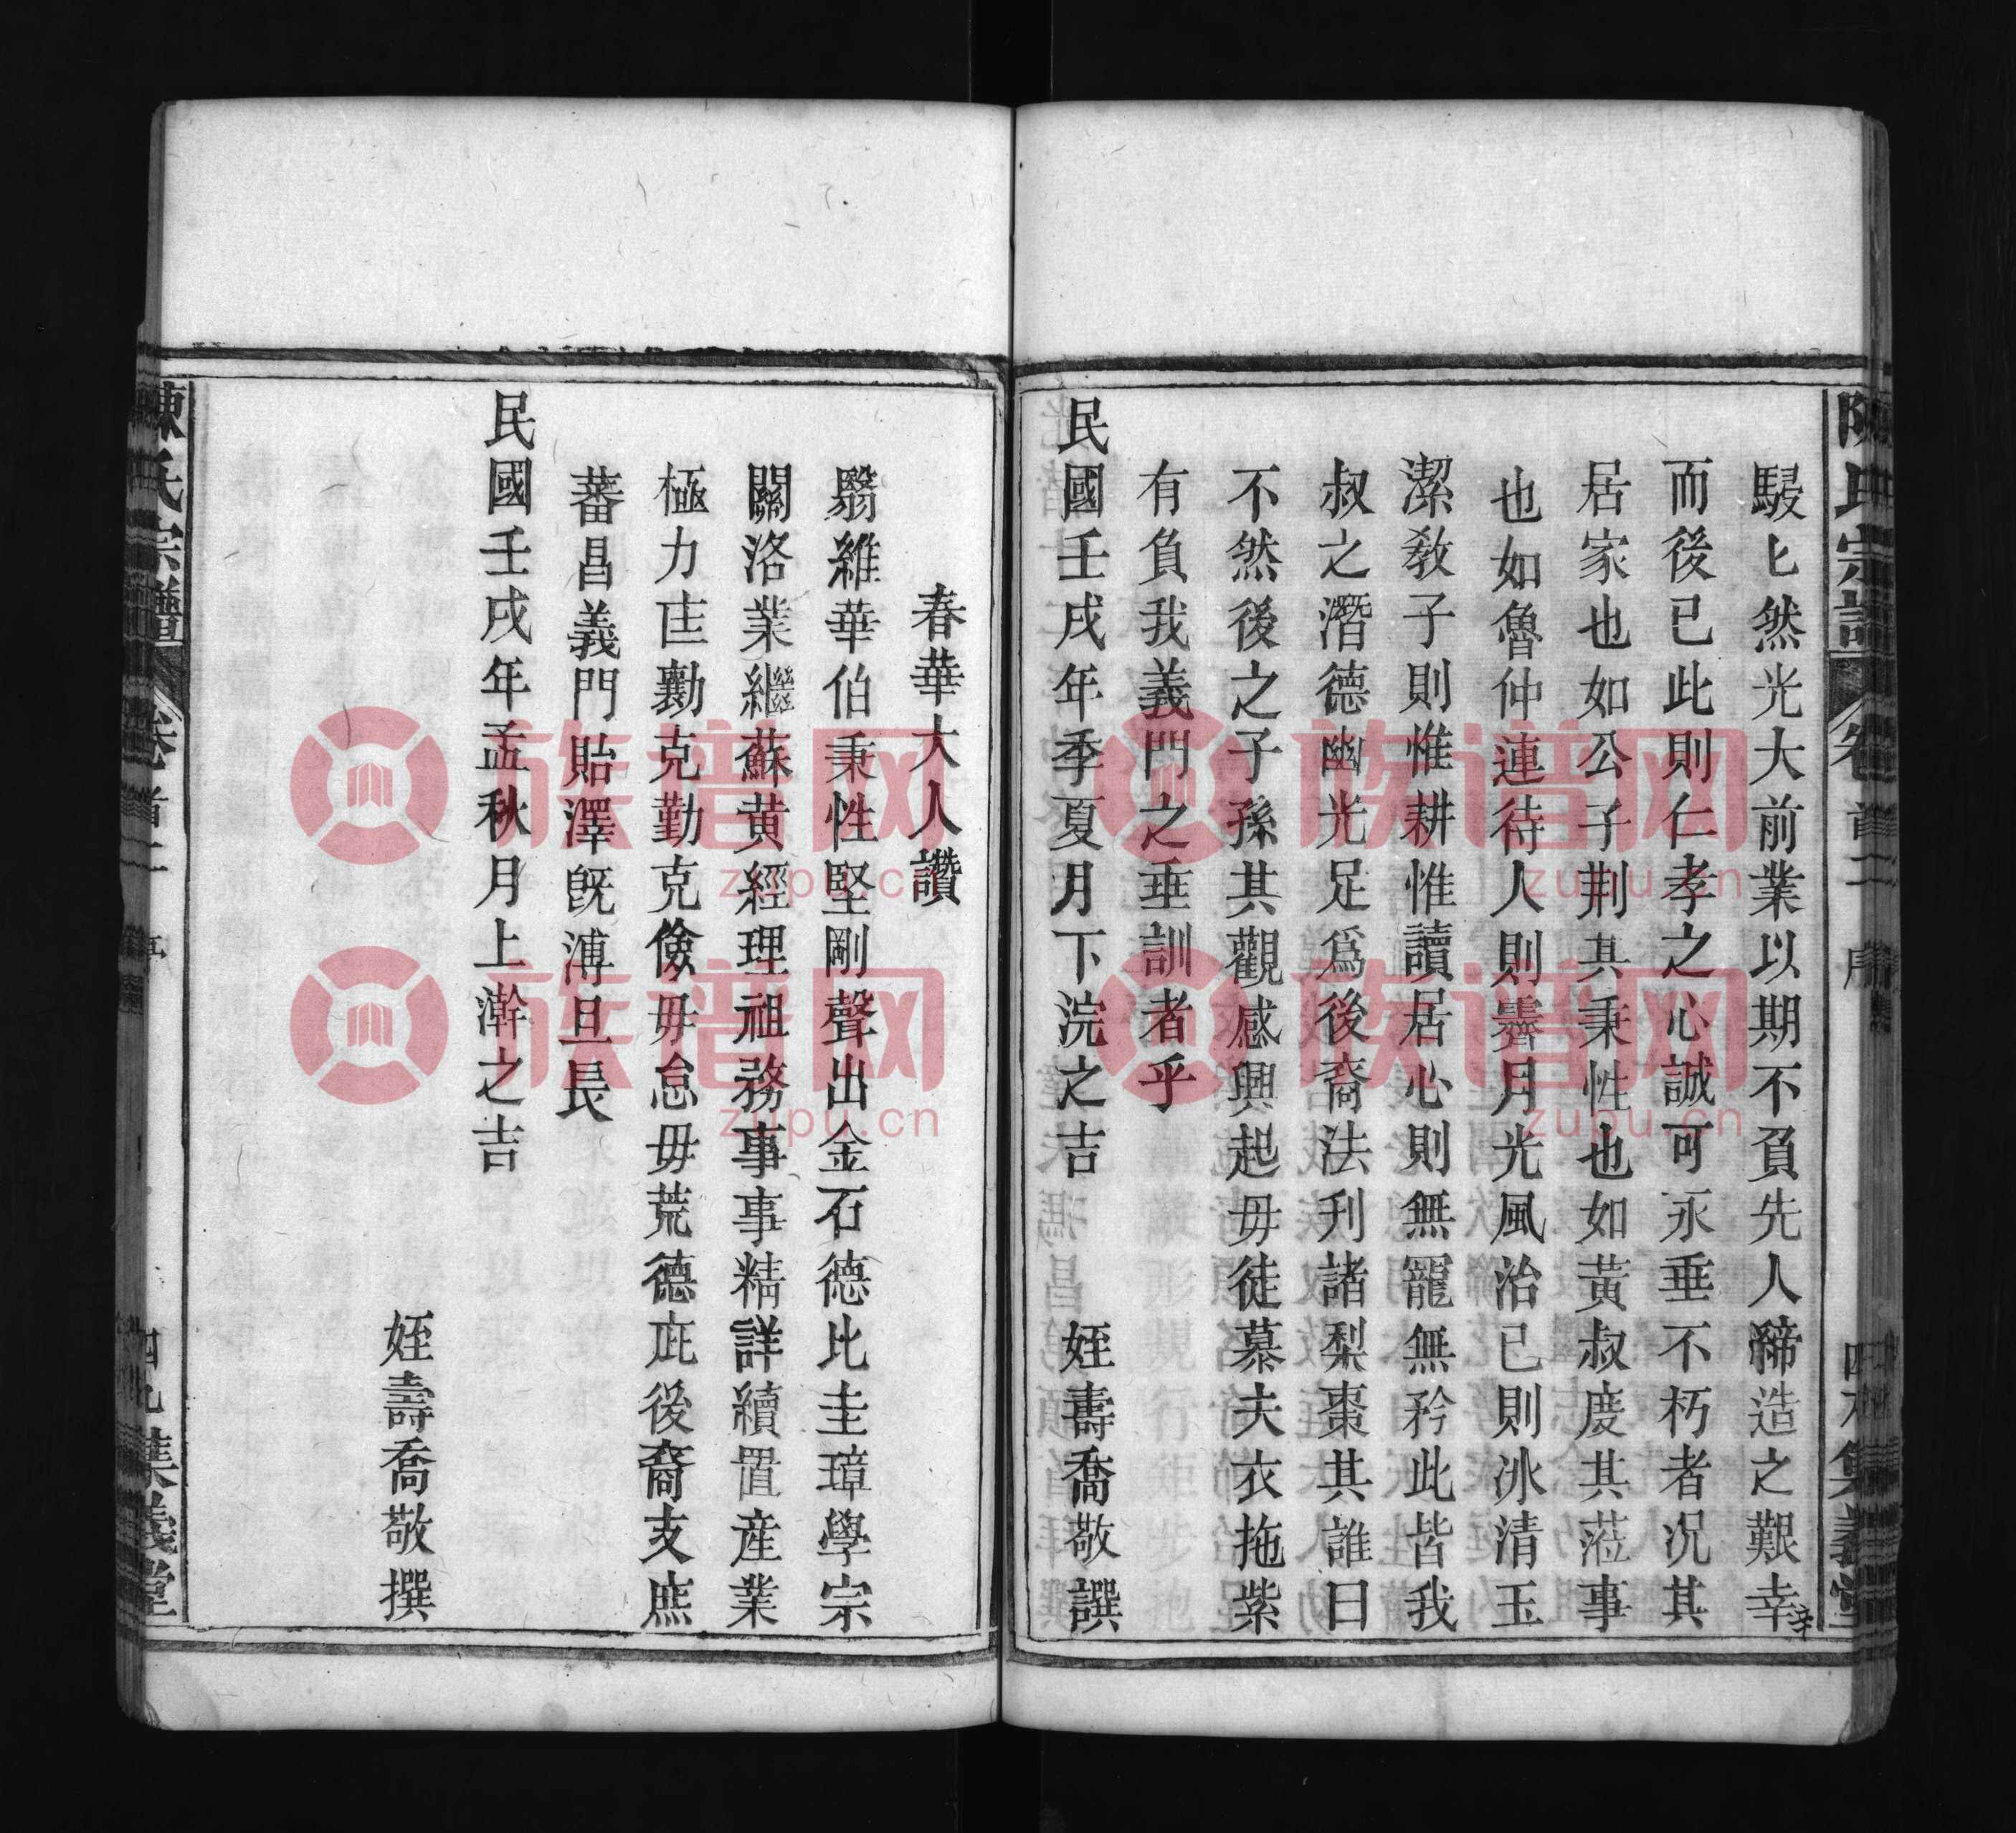 陳氏宗譜 卷首二 序 集義堂
駸匕然光大前業以期不負先人締造之艱幸
而後已此則仁孝之心誠可永垂不朽者况其
居家也如公子荆其秉性也如黃叔度其蒞事
也如魯仲連待人則霽月光風治已則氷清玉
潔教子則惟耕惟讀居心則無寵無矜此皆我
叔之潛德幽光足爲後裔法刋諸梨棗其誰曰
不然後之子孫其觀感興起毋徒慕夫衣拖紫
有負我義門之垂訓者乎
民國壬戌年季夏月下浣之吉 姪壽喬敬譔
春華大人讚
翳維華伯秉性堅剛聲出金石德比圭璋學宗
關洛業繼蘇黃經理祖務事事精詳續置產業
極力匡勷克勤克儉毋怠毋荒德庇後裔支庶
蕃昌義門貽澤旣溥且長
民國壬戌年孟秋月上澣之吉
姪壽喬敬撰
陳氏宗譜 卷首二 序 四九 集義堂
族谱网
zupu.cn
族谱网
zupu.cn
族谱网
zupu.cn
族谱网
zupu.cn